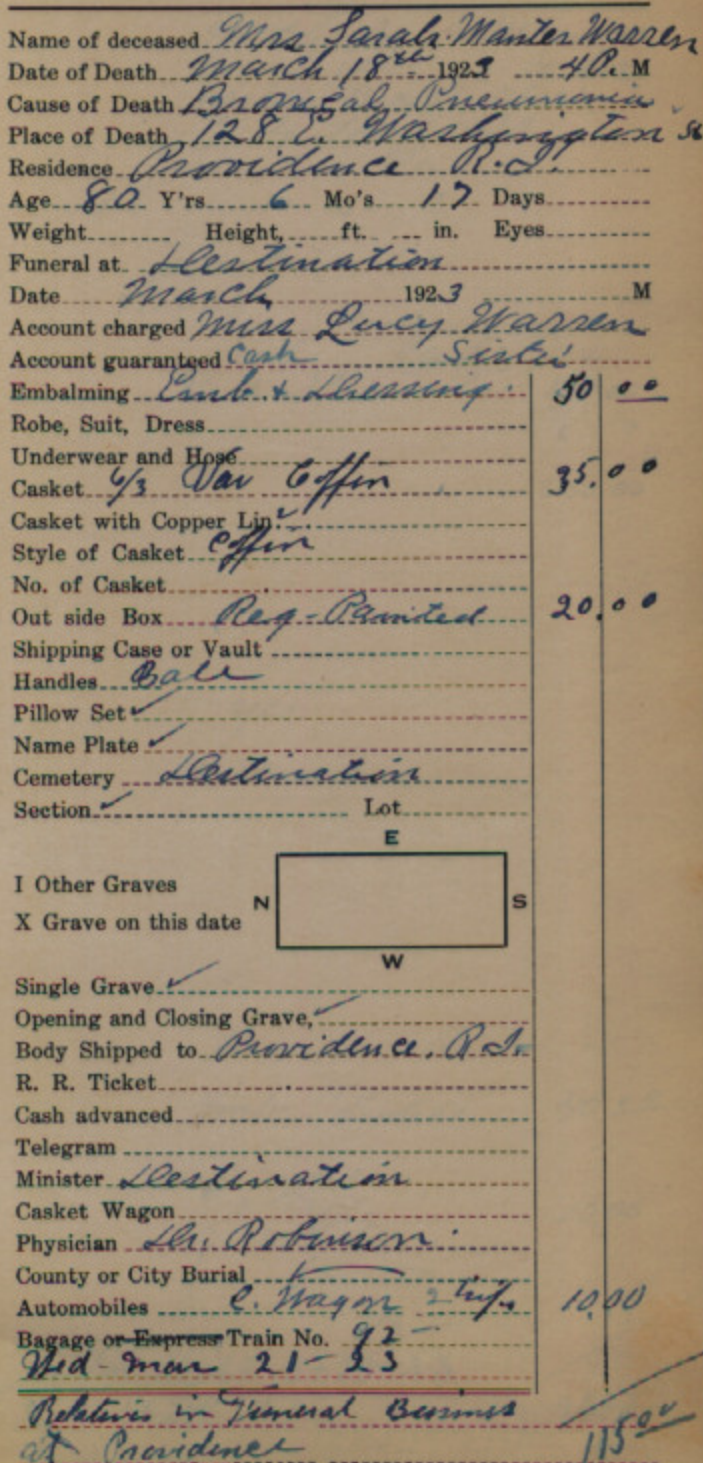 Name of deceased Mrs Sarah Manter Warren
Date of Death March 18th 1923 4 P. M
Cause of Death Bronical Pneumonia
Place of Death 128 E. Washington St
Residence Providence R.I.
Age 80 Y'rs 6 Mo's 17 Days
Weight Height, ft. in. Eyes
Funeral at Destination
Date March 1923 M
Account charged Miss Lucy Warren
Account guaranteed Cash Sister
Embalming Emb. & Dressing 50 00
Robe, Suit, Dress
Underwear and Hose
Casket 6/3 Var Coffin 35.00
Casket with Copper Lin.
Style of Casket Coffin
No. of Casket
Out side Box Reg-Painted 20.00
Shipping Case or Vault
Handles Bale
Pillow Set ✓
Name Plate ✓
Cemetery Destination
Section ✓ Lot
E
I Other Graves
N S
X Grave on this date
W
Single Grave ✓
Opening and Closing Grave, ✓
Body Shipped to Providence. R.I.
R. R. Ticket
Cash advanced
Telegram
Minister Destination
Casket Wagon
Physician Dr. Robinson
County or City Burial
Automobiles C. Wagon 2 trips 10.00
Bagage or Express Train No. 92
Wed - Mar 21 - 23
Relatives in Funeral Business
at Providence 115 00